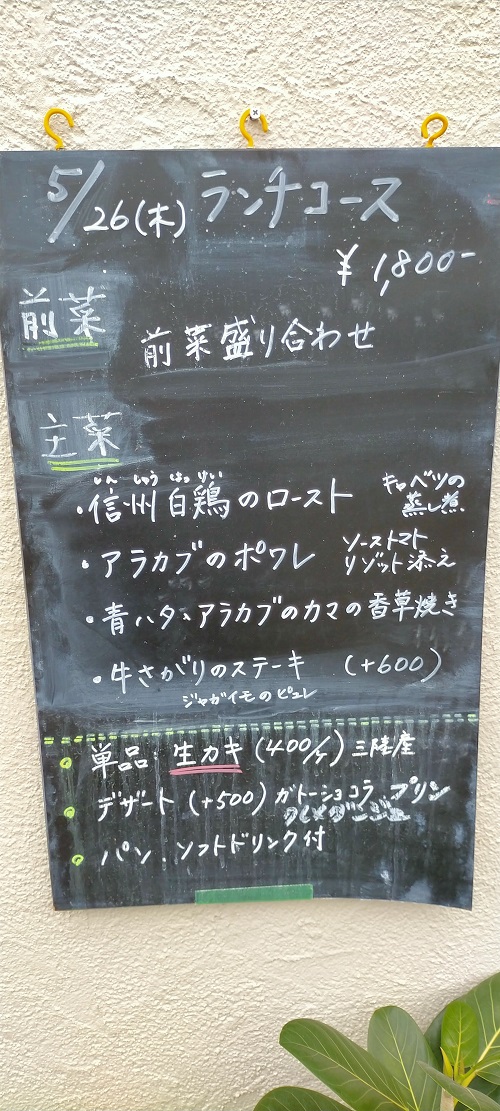 5/26(木) ランチコース
¥1,800-
前菜
前菜盛り合わせ
主菜
しん しゅう はっ けい
・信州白鶏のロースト キャベツの蒸し煮
・アラカブのポワレ ソーストマト リゾット添え
・青ハタ、アラカブのカマの香草焼き
・牛さがりのステーキ (+600)
ジャガイモのピュレ
単品 生カキ (400/ケ) 三陸産
デザート (+500) ガトーショコラ、プリン
パン、ソフトドリンク付